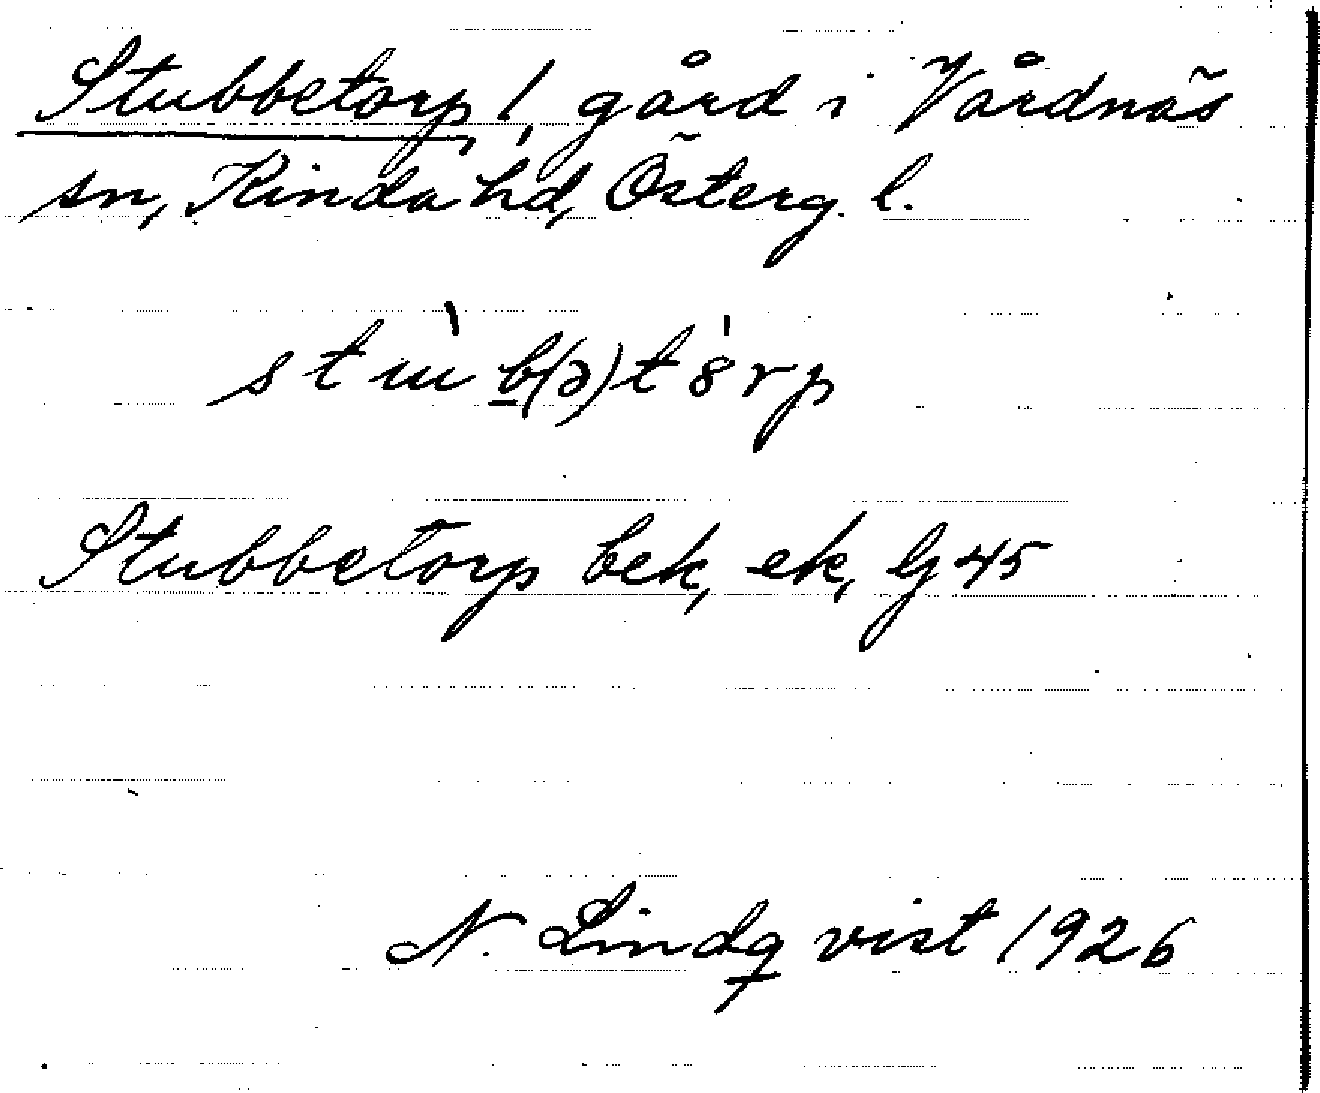 Stubbetorp, 1, gård i Vårdnäs
sn, Kinda hd, Österg. l.
stɯ̀b(ə)tȣ́rp
Stubbetorp bek, ek, Gj 45
N. Lindqvist 1926